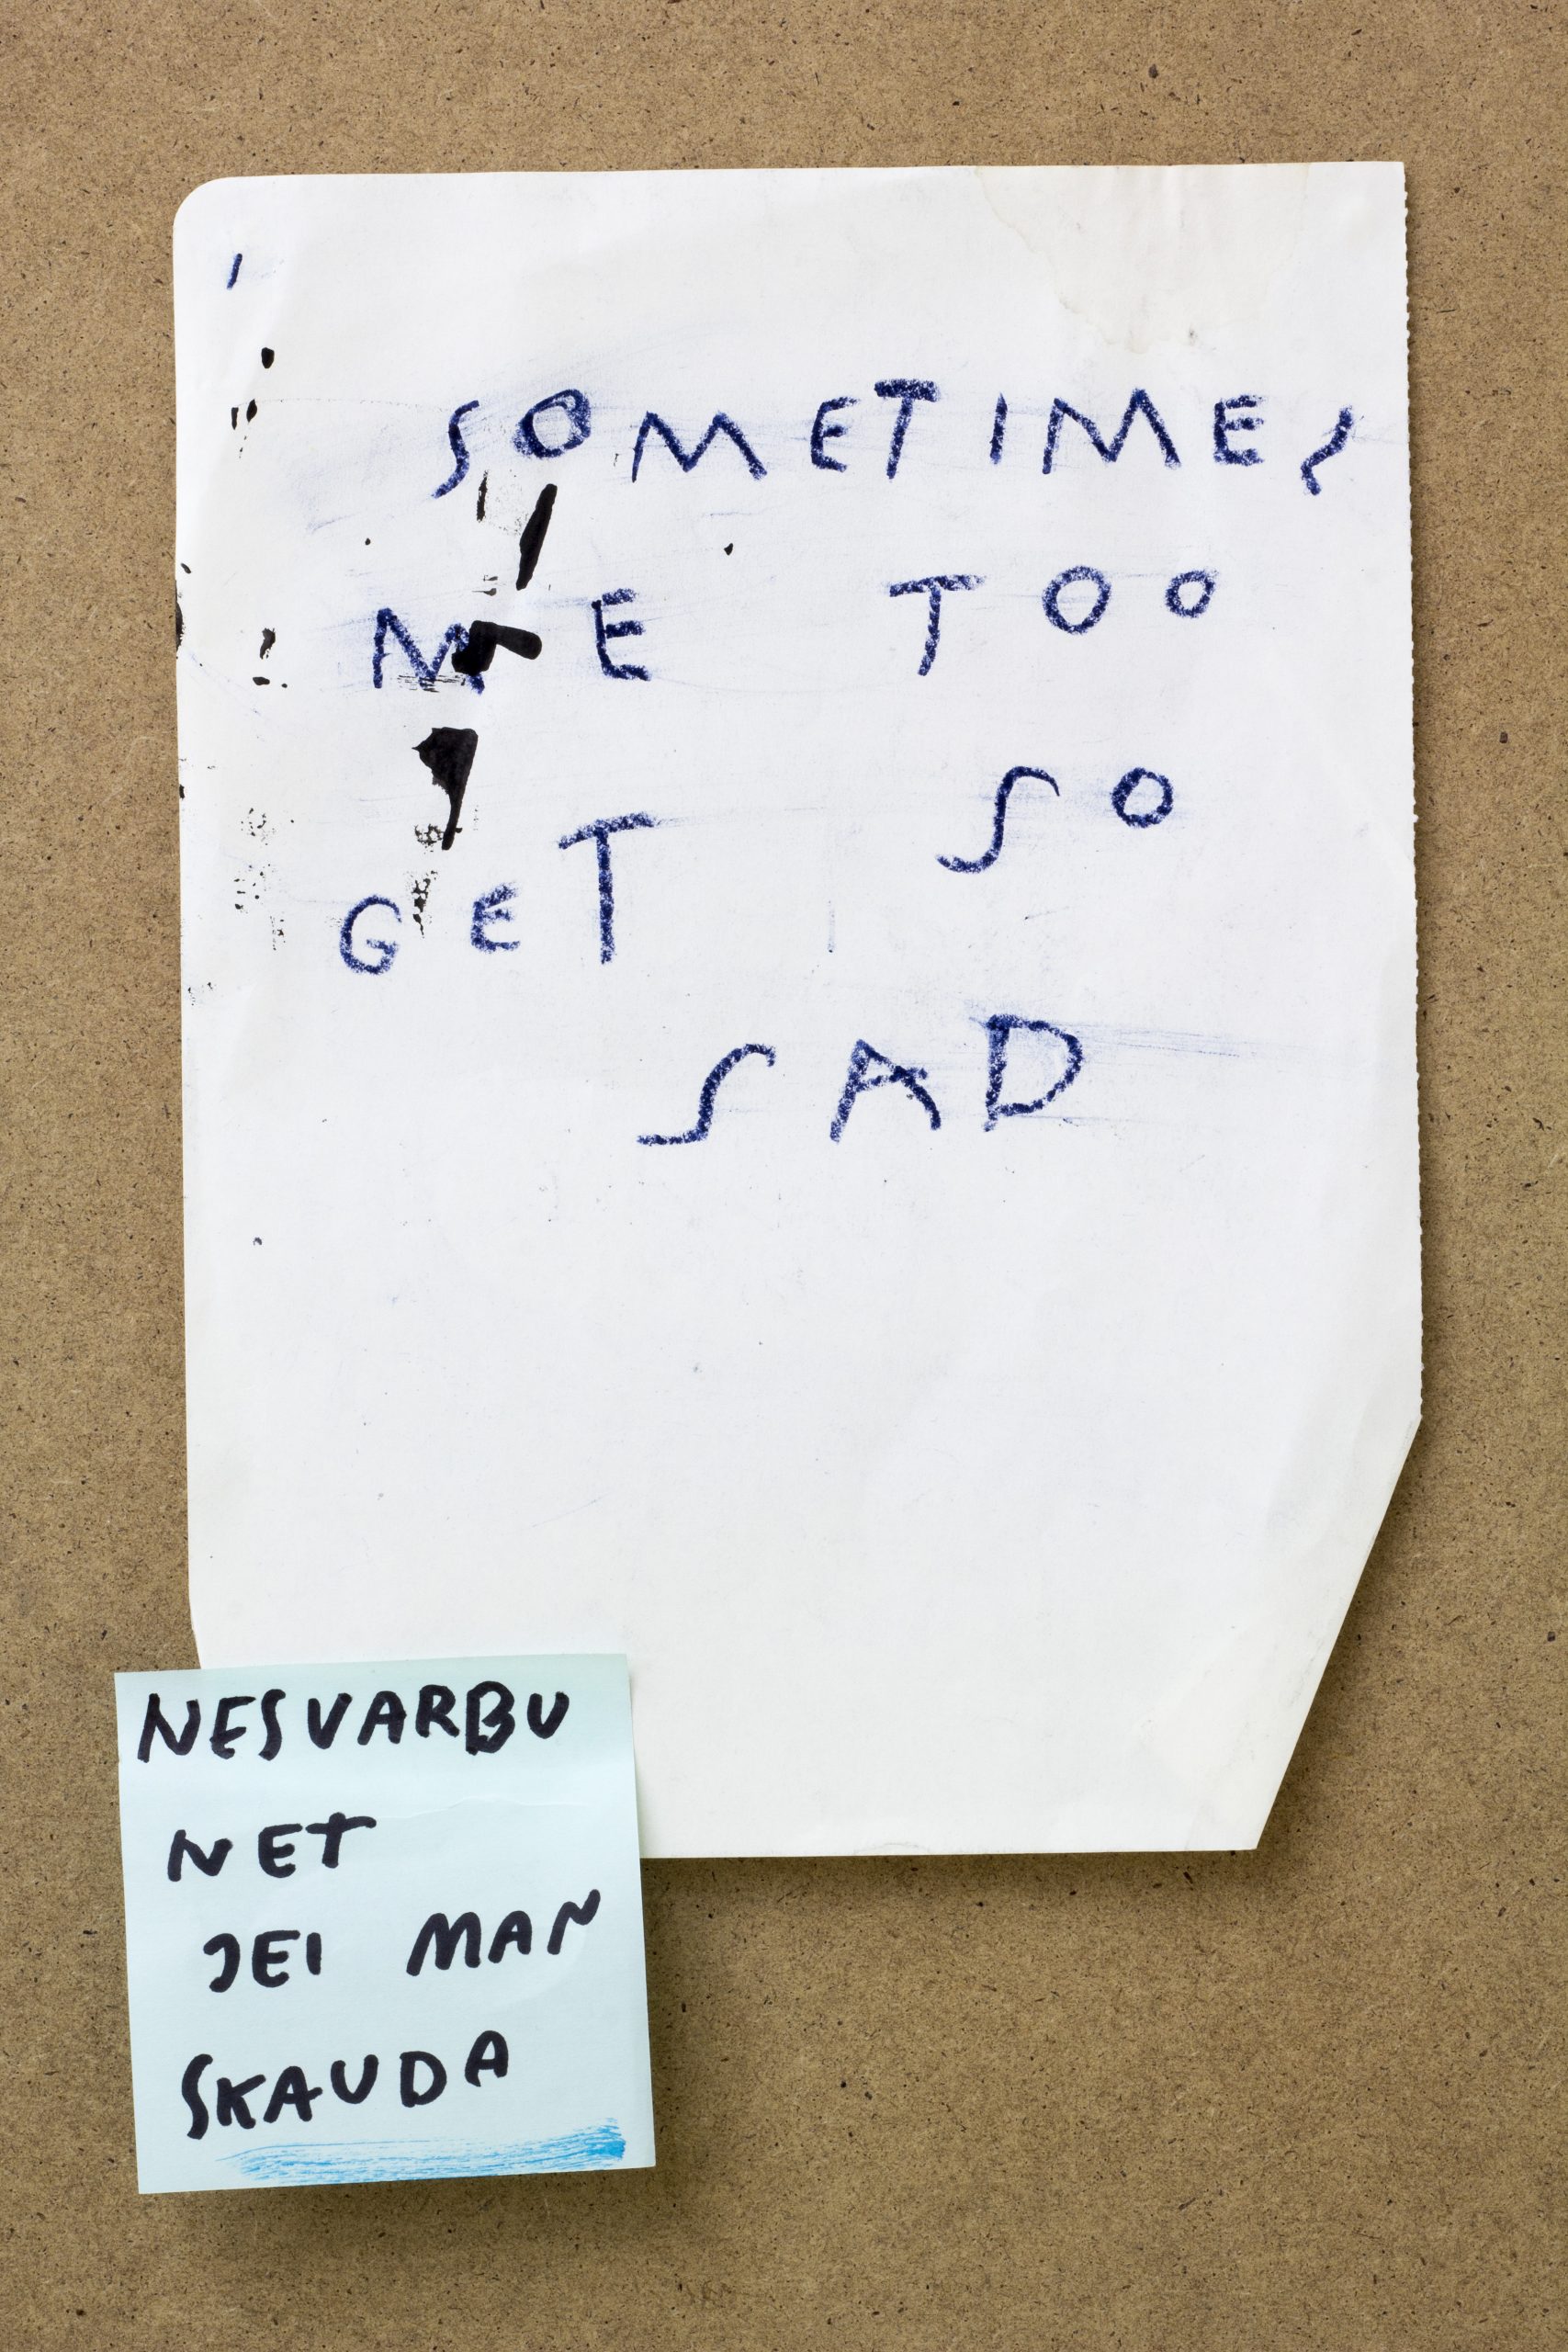 SOMETIMES
ME TOO
GET SO
SAD
NESVARBU
NET
JEI MAN
SKAUDA